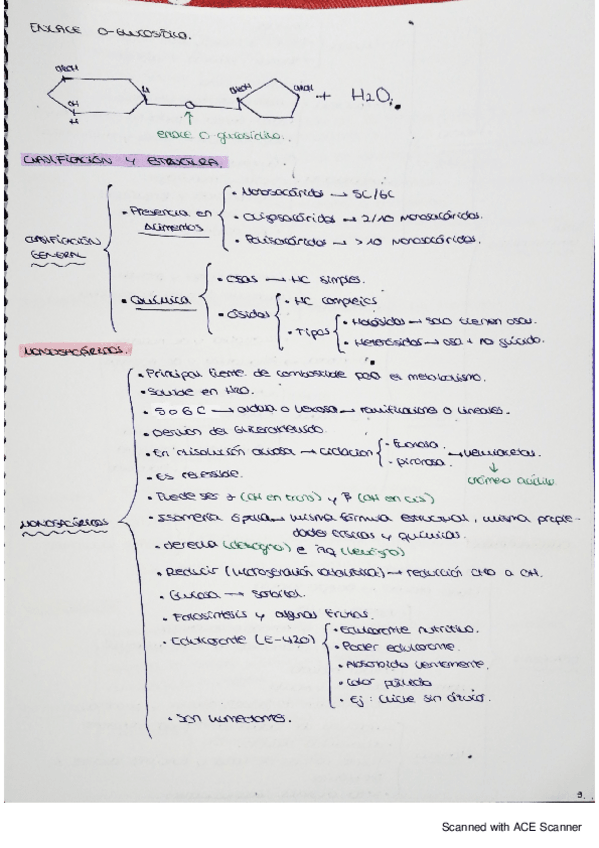 ENLACE O-GLUCOSÍDICO.
CH2OH
CH2OH
CH2OH
+ H2O.
OH
H
H
O
enlace O-glucosídico.
CLASIFICACIÓN Y ESTRUCTURA.
CLASIFICACIÓN GENERAL
• Presencia en Alimentos
• Monosacáridos → 5C/6C
• Oligosacáridos → 2/10 monosacáridos.
• Polisacáridos → >10 monosacáridos.
• Química
• Osas → HC simples.
• Ósidos
• HC complejos
• Tipos
• Holósidos → solo tienen osas.
• Heterósidos → osa + no glúcido.
MONOSACÁRIDOS.
MONOSACÁRIDOS
• Principal fuente de combustible para el metabolismo.
• Soluble en H2O.
• 5 o 6 C → o → ramificaciones o lineales.
• Derivan del Gliceraldehído.
• En disolución acuosa → ciclación
• Furanosa.
• piranosa.
→ hemiacetales.
↓
• Es reversible.
• Puede ser α (OH en trans) y β (OH en cis)
• Isomería óptica → misma fórmula estructural, misma propie-
dades físicas y químicas.
• derecha (dextrógiro) e izq (levógiro)
• Reducir (hidrogenación catalítica) → reducción CHO a OH.
• Glucosa → sorbitol.
• Fotosíntesis y algunas frutas.
• Edulcorante (E-420)
• Edulcorante nutritivo.
• Poder edulcorante.
• Absorbido lentamente.
• Ej: chicle sin azúcar.
• Son humectantes.
9.
Scanned with ACE Scanner